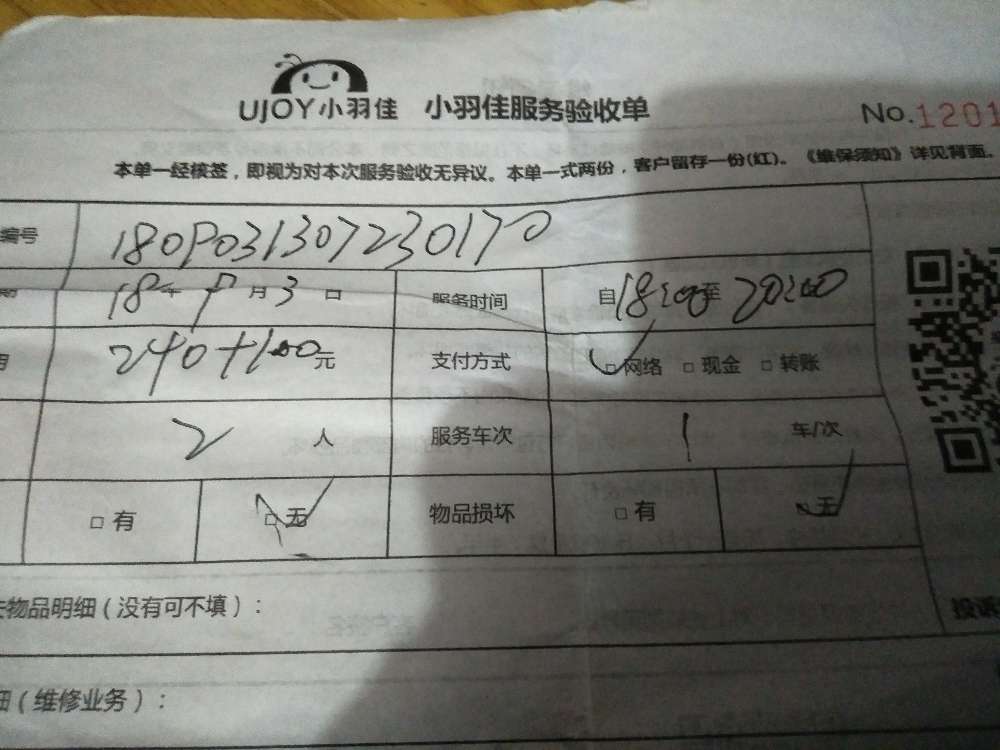 UJOY小羽佳 小羽佳服务验收单
No.1201
本单一经核签，即视为对本次服务验收无异议。本单一式两份，客户留存一份(红)。《维保须知》详见背面。
编号 180P031307230170
18年9月3日 服务时间 自18:00至20:00
240+100元 支付方式 ☑网络 □现金 □转账
2人 服务车次 1 车/次
□有 ☑无 物品损坏 □有 ☑无
物品明细（没有可不填）：
投诉
细（维修业务）：